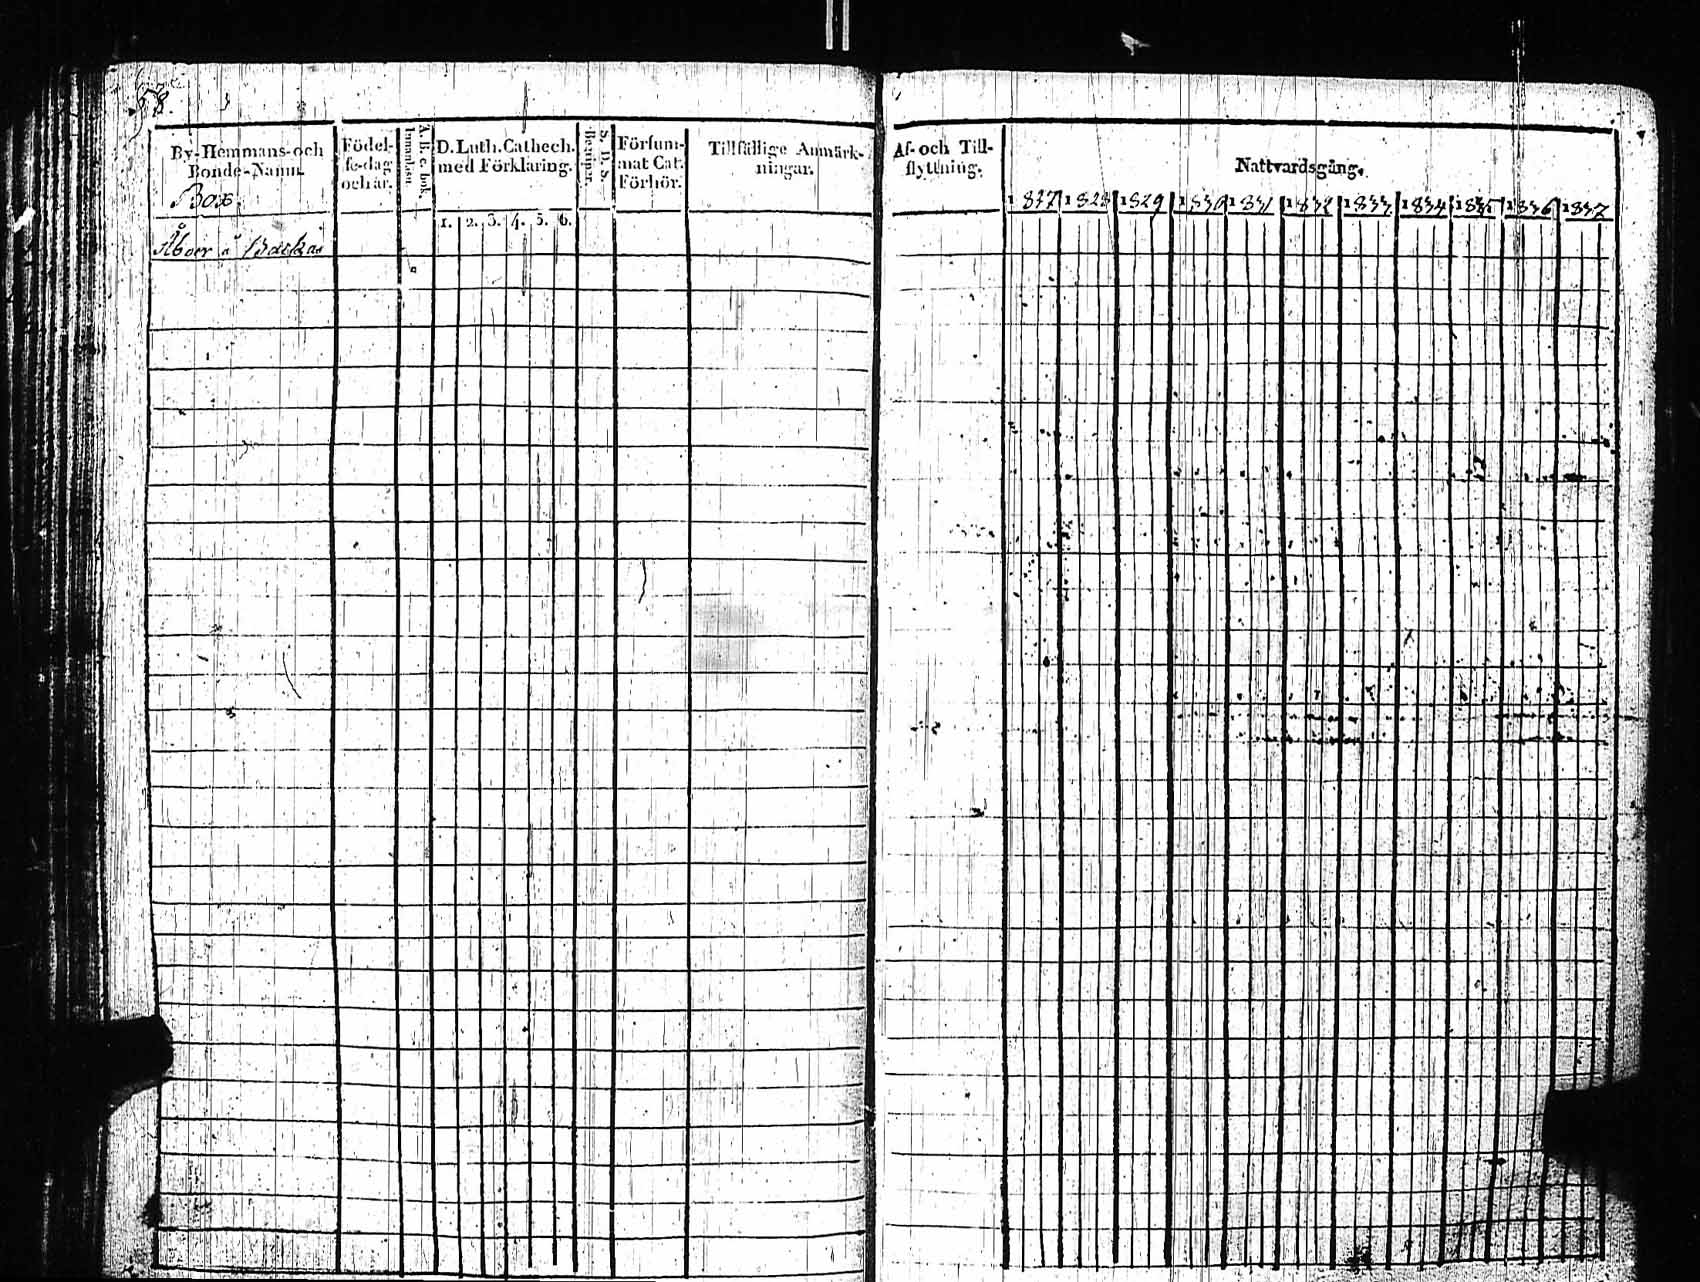 58.
By-Hemmans-och Bonde-Namn.
Box.
Födel-
se-dag
och år.
A. B. c. bok.
Innanläsn.
D. Luth. Cathech.
med Förklaring.
1. 2. 3. 4. 5. 6.
S. D. S.
Begripet.
Försum-
mat Cat.
Förhör.
Tillfällige Anmärk-
ningar.
Åboer å Backas
Af- och Till-
flyttning.
Nattvardsgång.
1827 1828 1829 1830 1831 1832 1833 1834 1835 1836 1837